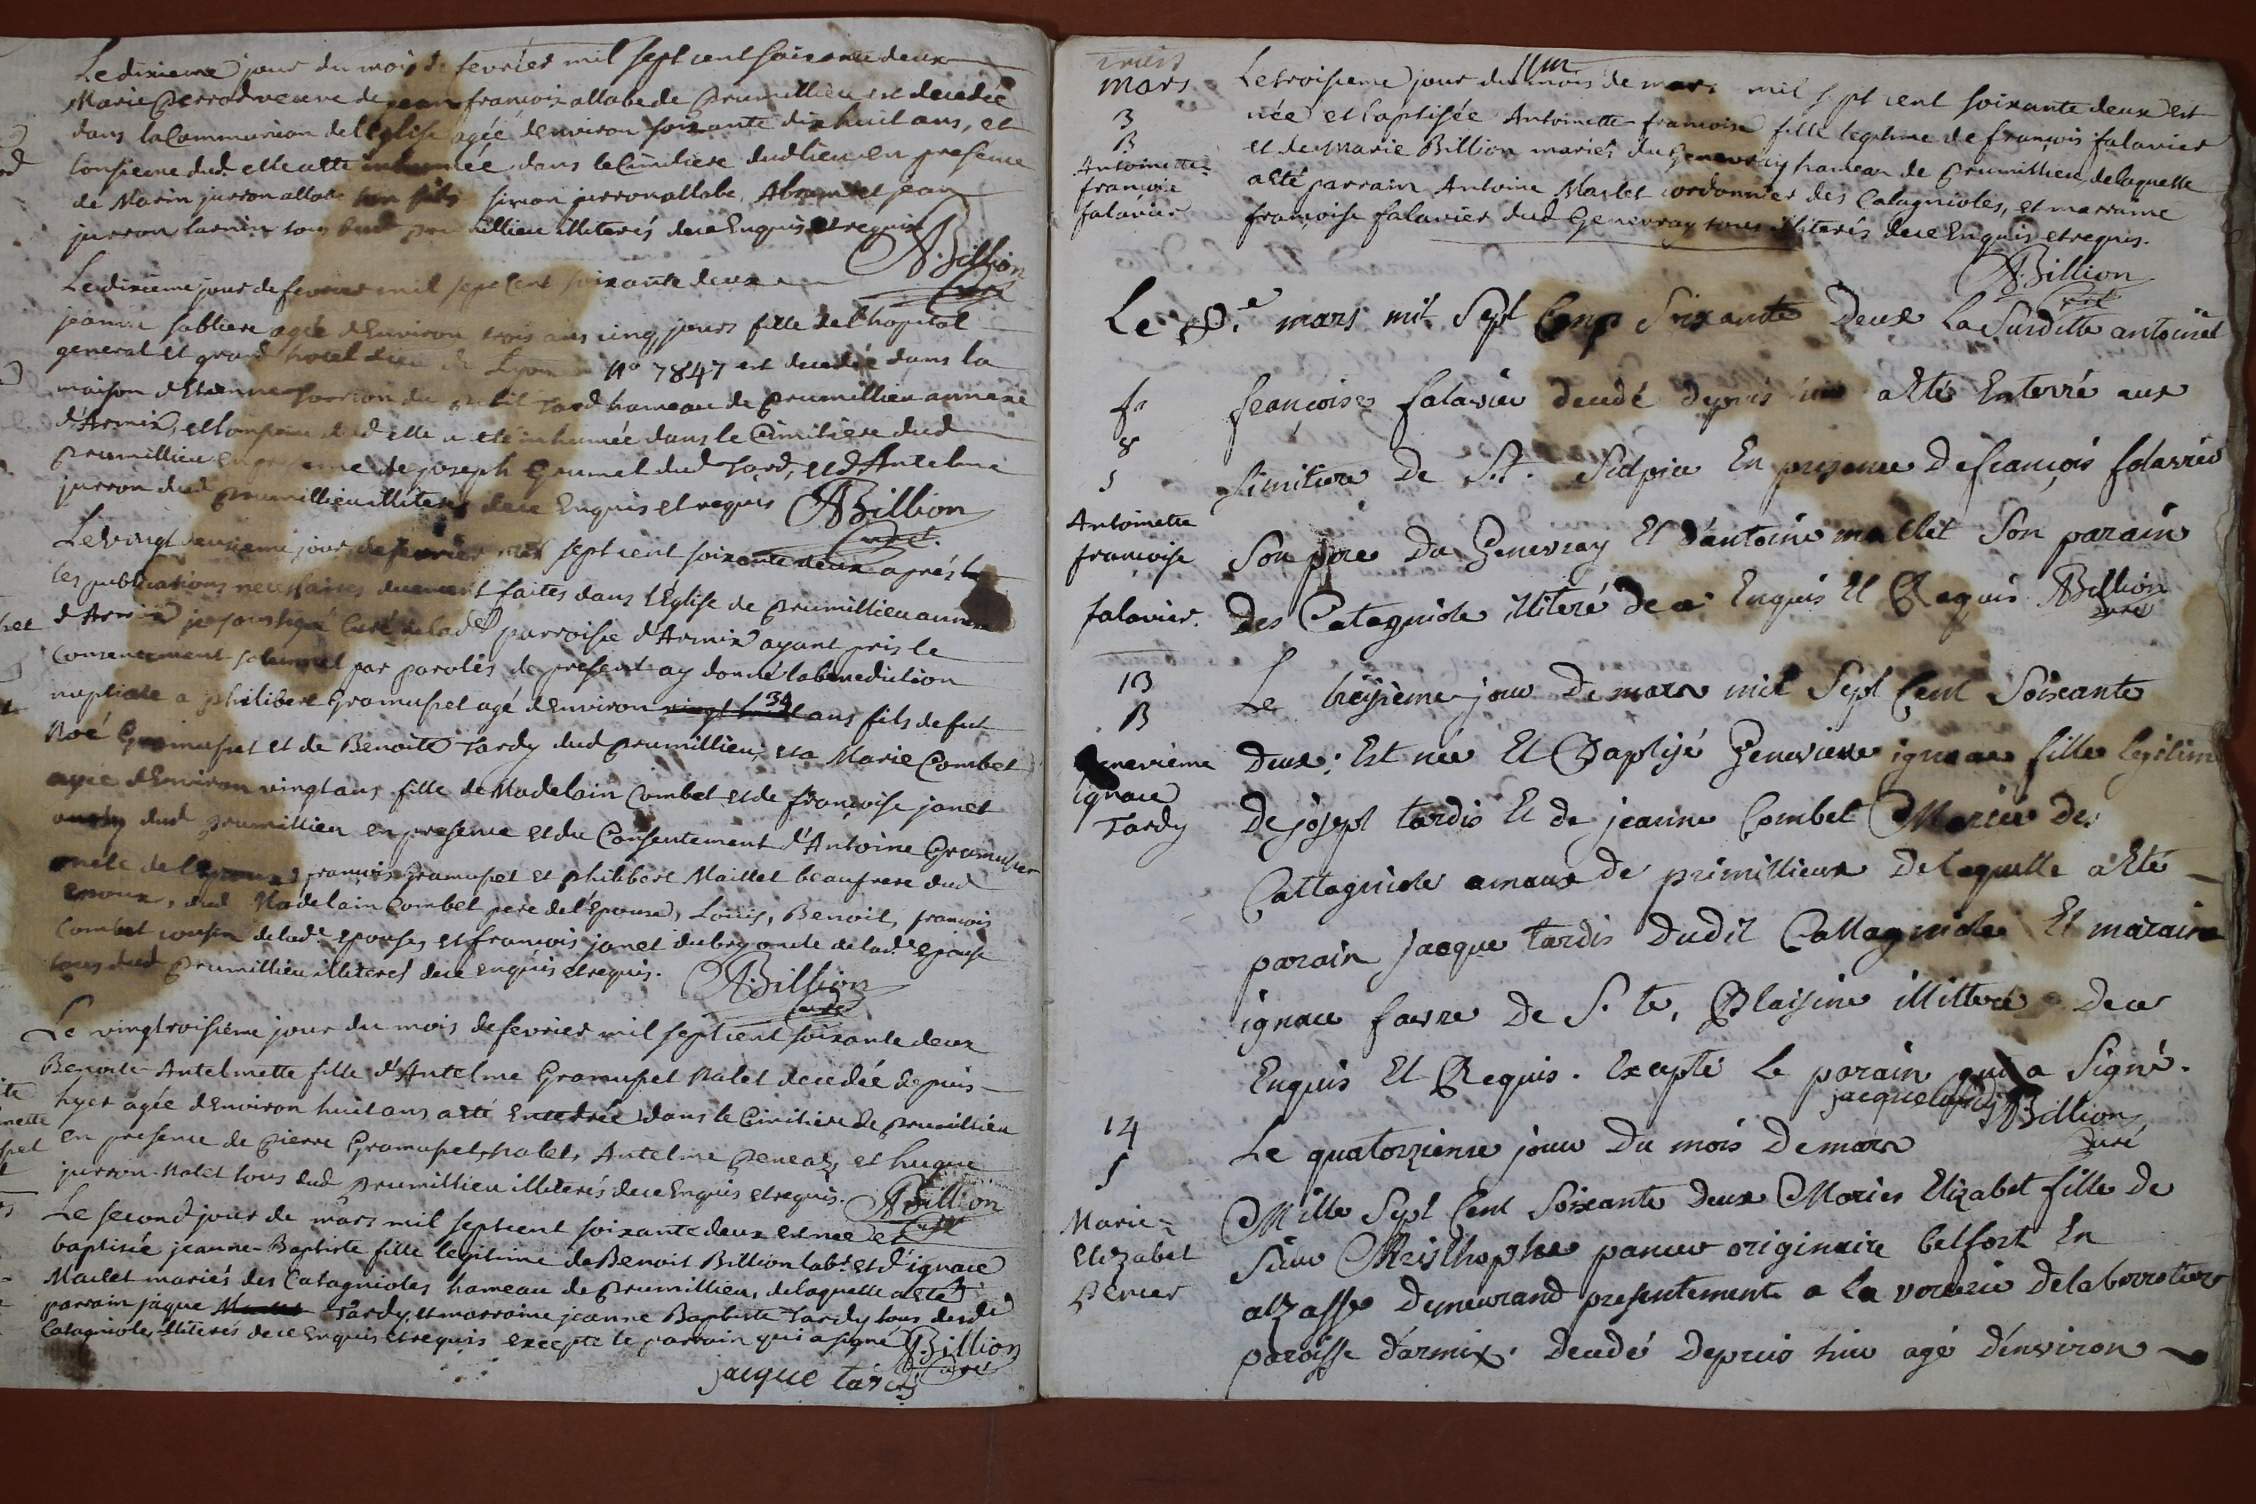 Le dixieme jour du mois de fevrier mil sept cent soixante deux
Marie Perrod veuve de jean francoix allabe de Prumillieu est decedée
dans la Communion de l'Eglise agée denviron soixante dix huit ans, et
lonsieme dud. elle a eté inhumée dans le Cimitiere dud lieu en presence
de Marin jurron allabe son fils simon jurron allabe, Abram et jean
jurron tous dud prumillieu illiterés de ce Enquis et requis
ABillion
Curé
Le dixieme jour de fevrier mil sept Cent soixante deux
jeanne sabliere agée d'Environ trois ans cinq jours fille de l'hopital
general et grand hotel dieu de Lyon N° 7847 est decedée dans la
maison d'Etienne du petit Tard hameau de Prumillieu annexe
d'Armix, et lonsieme dud elle a eté inhumée dans le Cimitiere dud
Prumillieu en presence de joseph Grumel dud Tard, et d'Antelme
jurron dud Prumillieu illiterés de ce Enquis et requis ABillion
Curé
Le vingt deuxieme jour de fevrier mil sept cent soixante deux après
les publications necessaires duement faites dans l'Eglise de Prumillieu annexe
d'Armix je soussigné Curé de lad. parroisse d'Armix ayant pris le
Consentement solennel par paroles de present ay donné la benediction
nuptiale a philibert Gramuset agé d'Environ 34 ans fils de fut
Noé Gramuset et de Benoite Tardy dud Prumillieu, et a Marie Combet
agée d'Environ vingt ans fille de Madelain Combet et de françoise janet
dud Prumillieu en presence et du Consentement d'Antoine Gramuset
oncle de l'epoux, françois Gramuset et philibert Maillet beaufrere dud
epoux, dud Madelain Combet pere de l'Epouse, Loüis, Benoit, francois
Combet cousin de lad.e epouse, et francois janet oncle de lad.e epouse
tous dud Prumillieu illiterés de ce enquis et requis.
ABillion
Curé
Le vingtroisieme jour du mois de fevrier mil sept cent soixante deux
Benoite-Antelmette fille d'Antelme Gramuset Nalet decedée depuis
hyer agée d'Environ huit ans a eté Enterrée dans le Cimitiere de Prumillieu
en presence de Pierre Gramuset Nalet, Antelme et hugue
jurron-Nalet tous dud Prumillieu illiterés de ce Enquis et requis. ABillion
Curé
Le second jour de mars mil sept cent soixante deux est née et
baptisée jeanne-Baptiste fille legitime de Benoit Billion lab.r et d'ignace
Maclet mariés des Catagnioles hameau de Prumillieu, de laquelle a eté
parrain jaque Tardy, et marraine jeanne Baptiste Tardy tous desd
Catagnioles illiterés de ce Enquis et requis excepte le parrain qui a signé ABillion
jacque tardi Curé
mars
3
B
Antoinette-
françoise
falavier
Le troisieme jour du mois de mars mil sept cent soixante deux est
née et baptisée Antoinette francoise fille legitime de françois falavier
et de Marie Billion mariés du Genevray hameau de Prumillieu de laquelle
a eté parrain Antoine Maclet cordonnier des Catagnioles, et marraine
françoise falavier dud Genevray tous illiterés de ce Enquis et requis.
ABillion
Curé
Le 8.e mars mil Sept Cenp Soixante Deux La Surditte antoinet
8
s
Antoinette
françoise
falavier.
françoise falavier decedé depuis hier a Eté Enterré aux
simitiere De S.t. Sulpice En presence De françois falavier
Son pere Du Genevray Et d'antoine mallet Son parain
Des Catagniole illiteré de ce Enquis Et Requis ABillion
Curé
13
B
Genevieme
ignace
Tardy
Le treizieme jour De mars mil Sept Cent Soixante
Deux; Est née Et Baptisé Genevieve ignace fille legitim
De joseph tardis Et De jeanne Combet Mariés Des
Cattagniole amaux de primillieux De laquelle a Eté
parain jacque tardis Dudit Cattagniole Et maraine
ignace favre De S.te, Blaisine illitteré De ce
Enquis Et Requis. Excepté Le parain qui a Signé.
jacque tardis ABillion
Curé
14
s
Marie-
Elizabet
Le quatorzieme jour Du mois De mars
Mille Sept Cent Soixante Deux Maries Elizabet fille De
Sieur Cristhophe originaire belfort En
alzasse Demeurand presentement a La verrerie
paroisse d'armix. Decedé Depuis hier agé d'environ